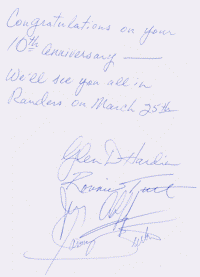 Congratulations on your
10th anniversary —
We'll see you all in
Randers on March 25th
Glen D Hardin
Ronnie Tutt
Jerry